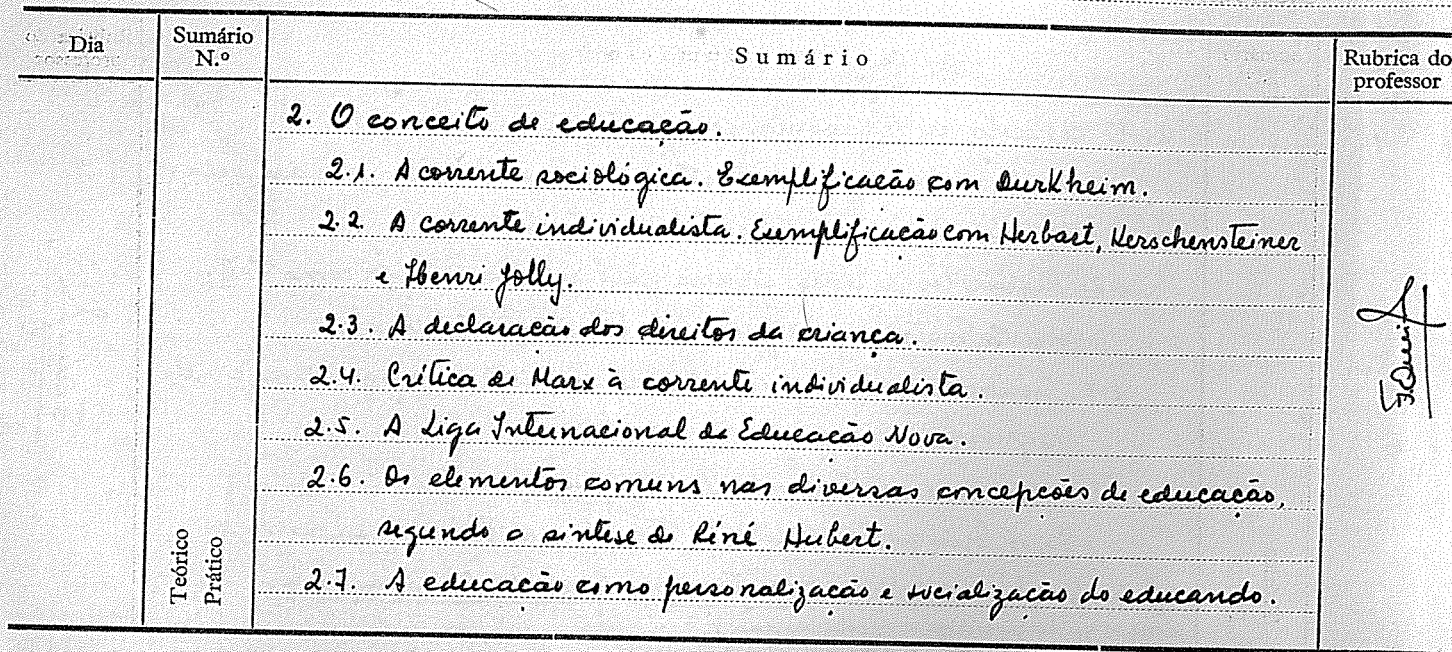 Dia
Sumário N.º
Sumário
Rubrica do professor
2. O conceito de educação.
2.1. A corrente sociológica. Exemplificação com Durkheim.
2.2. A corrente individualista. Exemplificação com Herbart, Kerschensteiner
e Henri Jolly.
2.3. A declaração dos direitos da criança.
2.4. Crítica de Marx à corrente individualista.
2.5. A Liga Internacional da Educação Nova.
2.6. Os elementos comuns nas diversas concepções de educação,
segundo a síntese de Réné Hubert.
2.7. A educação como personalização e socialização do educando.
Teórico
Prático